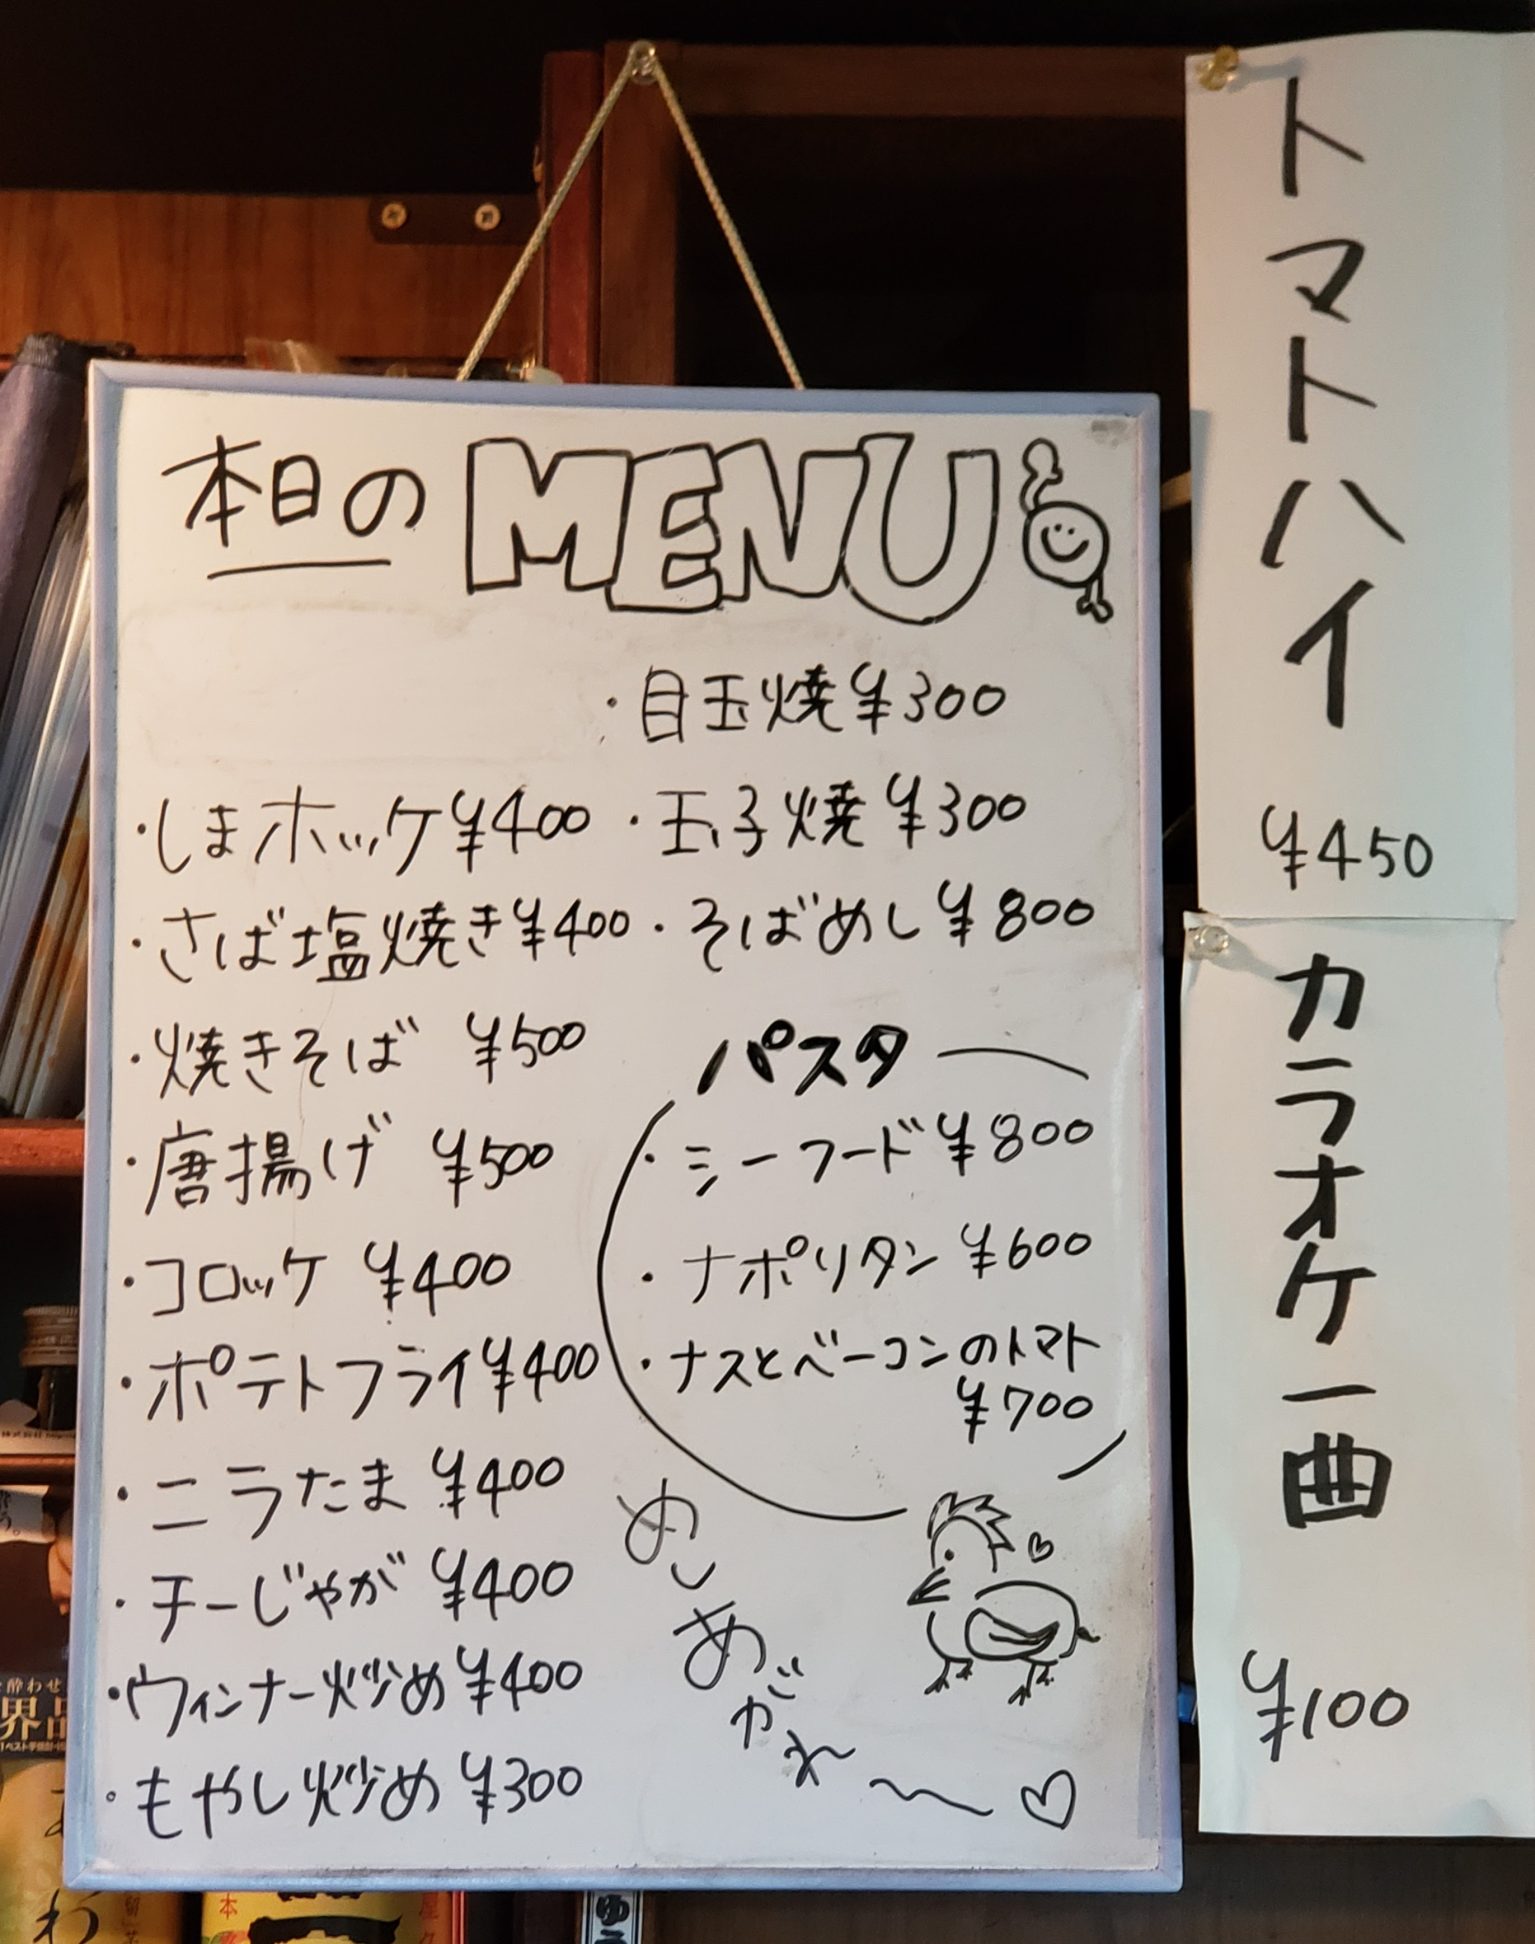 本日の MENU
・目玉焼 ¥300
・しまホッケ ¥400
・玉子焼 ¥300
・さば塩焼き ¥400
・そばめし ¥800
・焼きそば ¥500
・唐揚げ ¥500
・コロッケ ¥400
・ポテトフライ ¥400
・ニラたま ¥400
・チーじゃが ¥400
・ウィンナー炒め ¥400
・もやし炒め ¥300
パスタ
・シーフード ¥800
・ナポリタン ¥600
・ナスとベーコンのトマト
¥700
めしあがれ〜♡
トマトハイ
¥450
カラオケ一曲
¥100
酔わせ
界
わ
本
ゆ